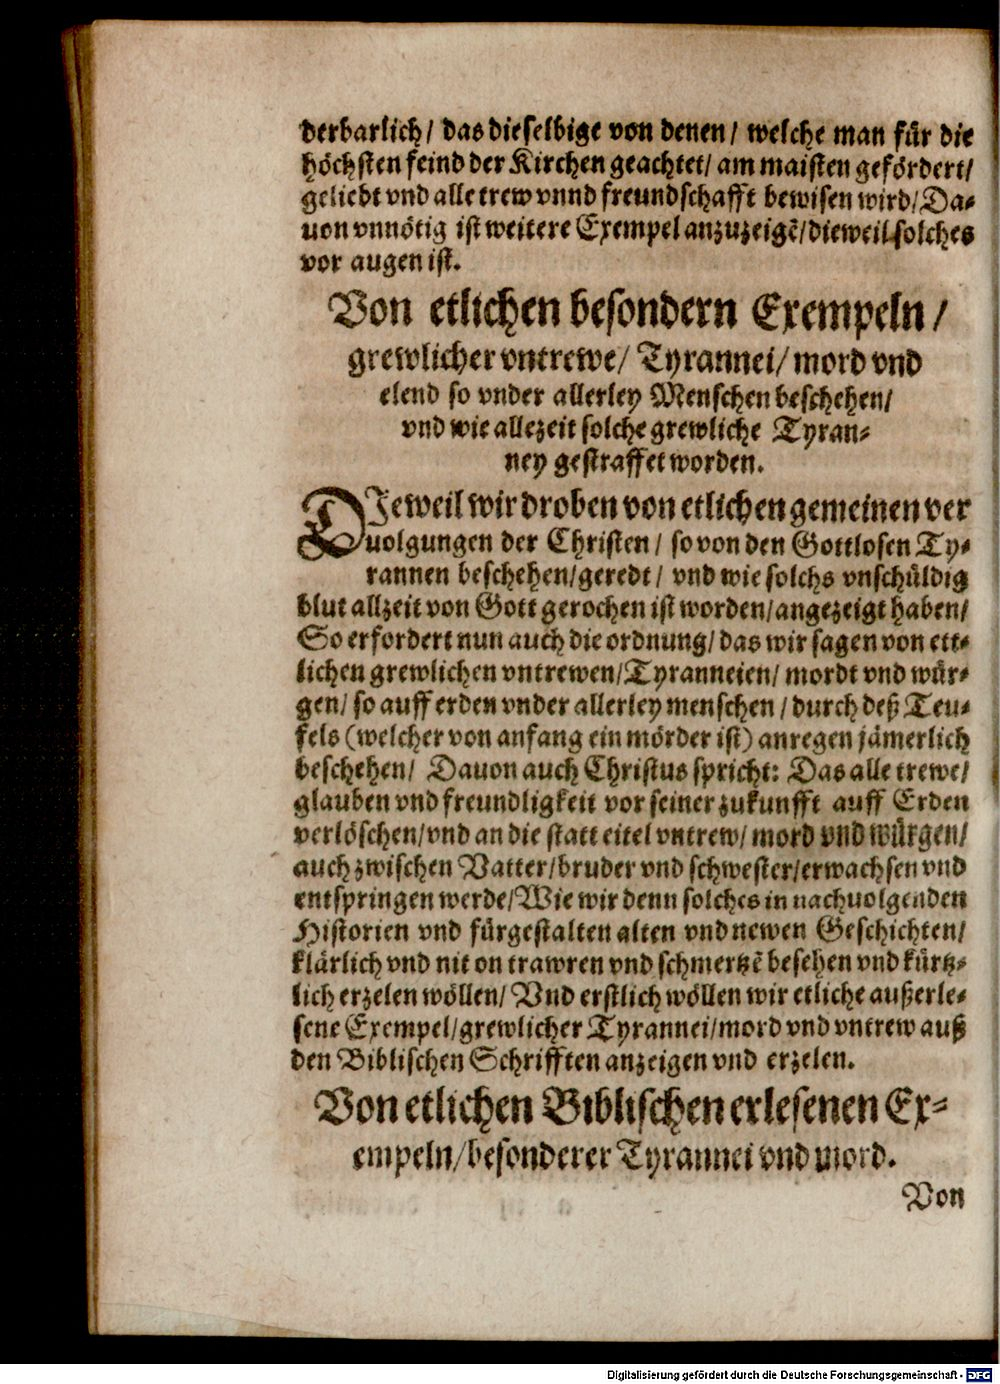 derbarlich/ das dieselbige von denen/ welche man für die
höchsten feind der Kirchen geachtet/ am maisten gefördert/
geliebt vnd alle trew vnnd freundschafft bewisen wird/ Da-
uon vnnötig ist weitere Exempel anzuzeigẽ/ dieweil solches
vor augen ist.
Von etlichen besondern Exempeln/
grewlicher vntrewe/ Tyrannei/ mord vnd
elend so vnder allerley Menschen beschehen/
vnd wie allezeit solche grewliche Tyran-
ney gestraffet worden.
DIeweil wir droben von etlichen gemeinen ver
uolgungen der Christen/ so von den Gottlosen Ty-
rannen beschehen/ geredt/ vnd wie solchs vnschüldig
blut allzeit von Gott gerochen ist worden/ angezeigt haben/
So erfordert nun auch die ordnung/ das wir sagen von ett-
lichen grewlichen vntrewen/ Tyranneien/ mordt vnd wür-
gen/ so auff erden vnder allerley menschen/ durch deß Teu-
fels (welcher von anfang ein mörder ist) anregen jämerlich
beschehen/ Dauon auch Christus spricht: Das alle trewe/
glauben vnd freundligkeit vor seiner zukunfft auff Erden
verlöschen/ vnd an die statt eitel vntrew/ mord vnd würgen/
auch zwischen Vatter/ bruder vnd schwester/ erwachsen vnd
entspringen werde/ Wie wir denn solches in nachuolgenden
Historien vnd fürgestalten alten vnd newen Geschichten/
klärlich vnd nit on trawren vnd schmertzẽ besehen vnd kürtz-
lich erzelen wöllen/ Vnd erstlich wöllen wir etliche außerle-
sene Exempel/ grewlicher Tyrannei/ mord vnd vntrew auß
den Biblischen Schrifften anzeigen vnd erzelen.
Von etlichen Biblischen erlesenen Ex-
empeln/ besonderer Tyrannei vnd mord.
Von
Digitalisierung gefördert durch die Deutsche Forschungsgemeinschaft - DFG